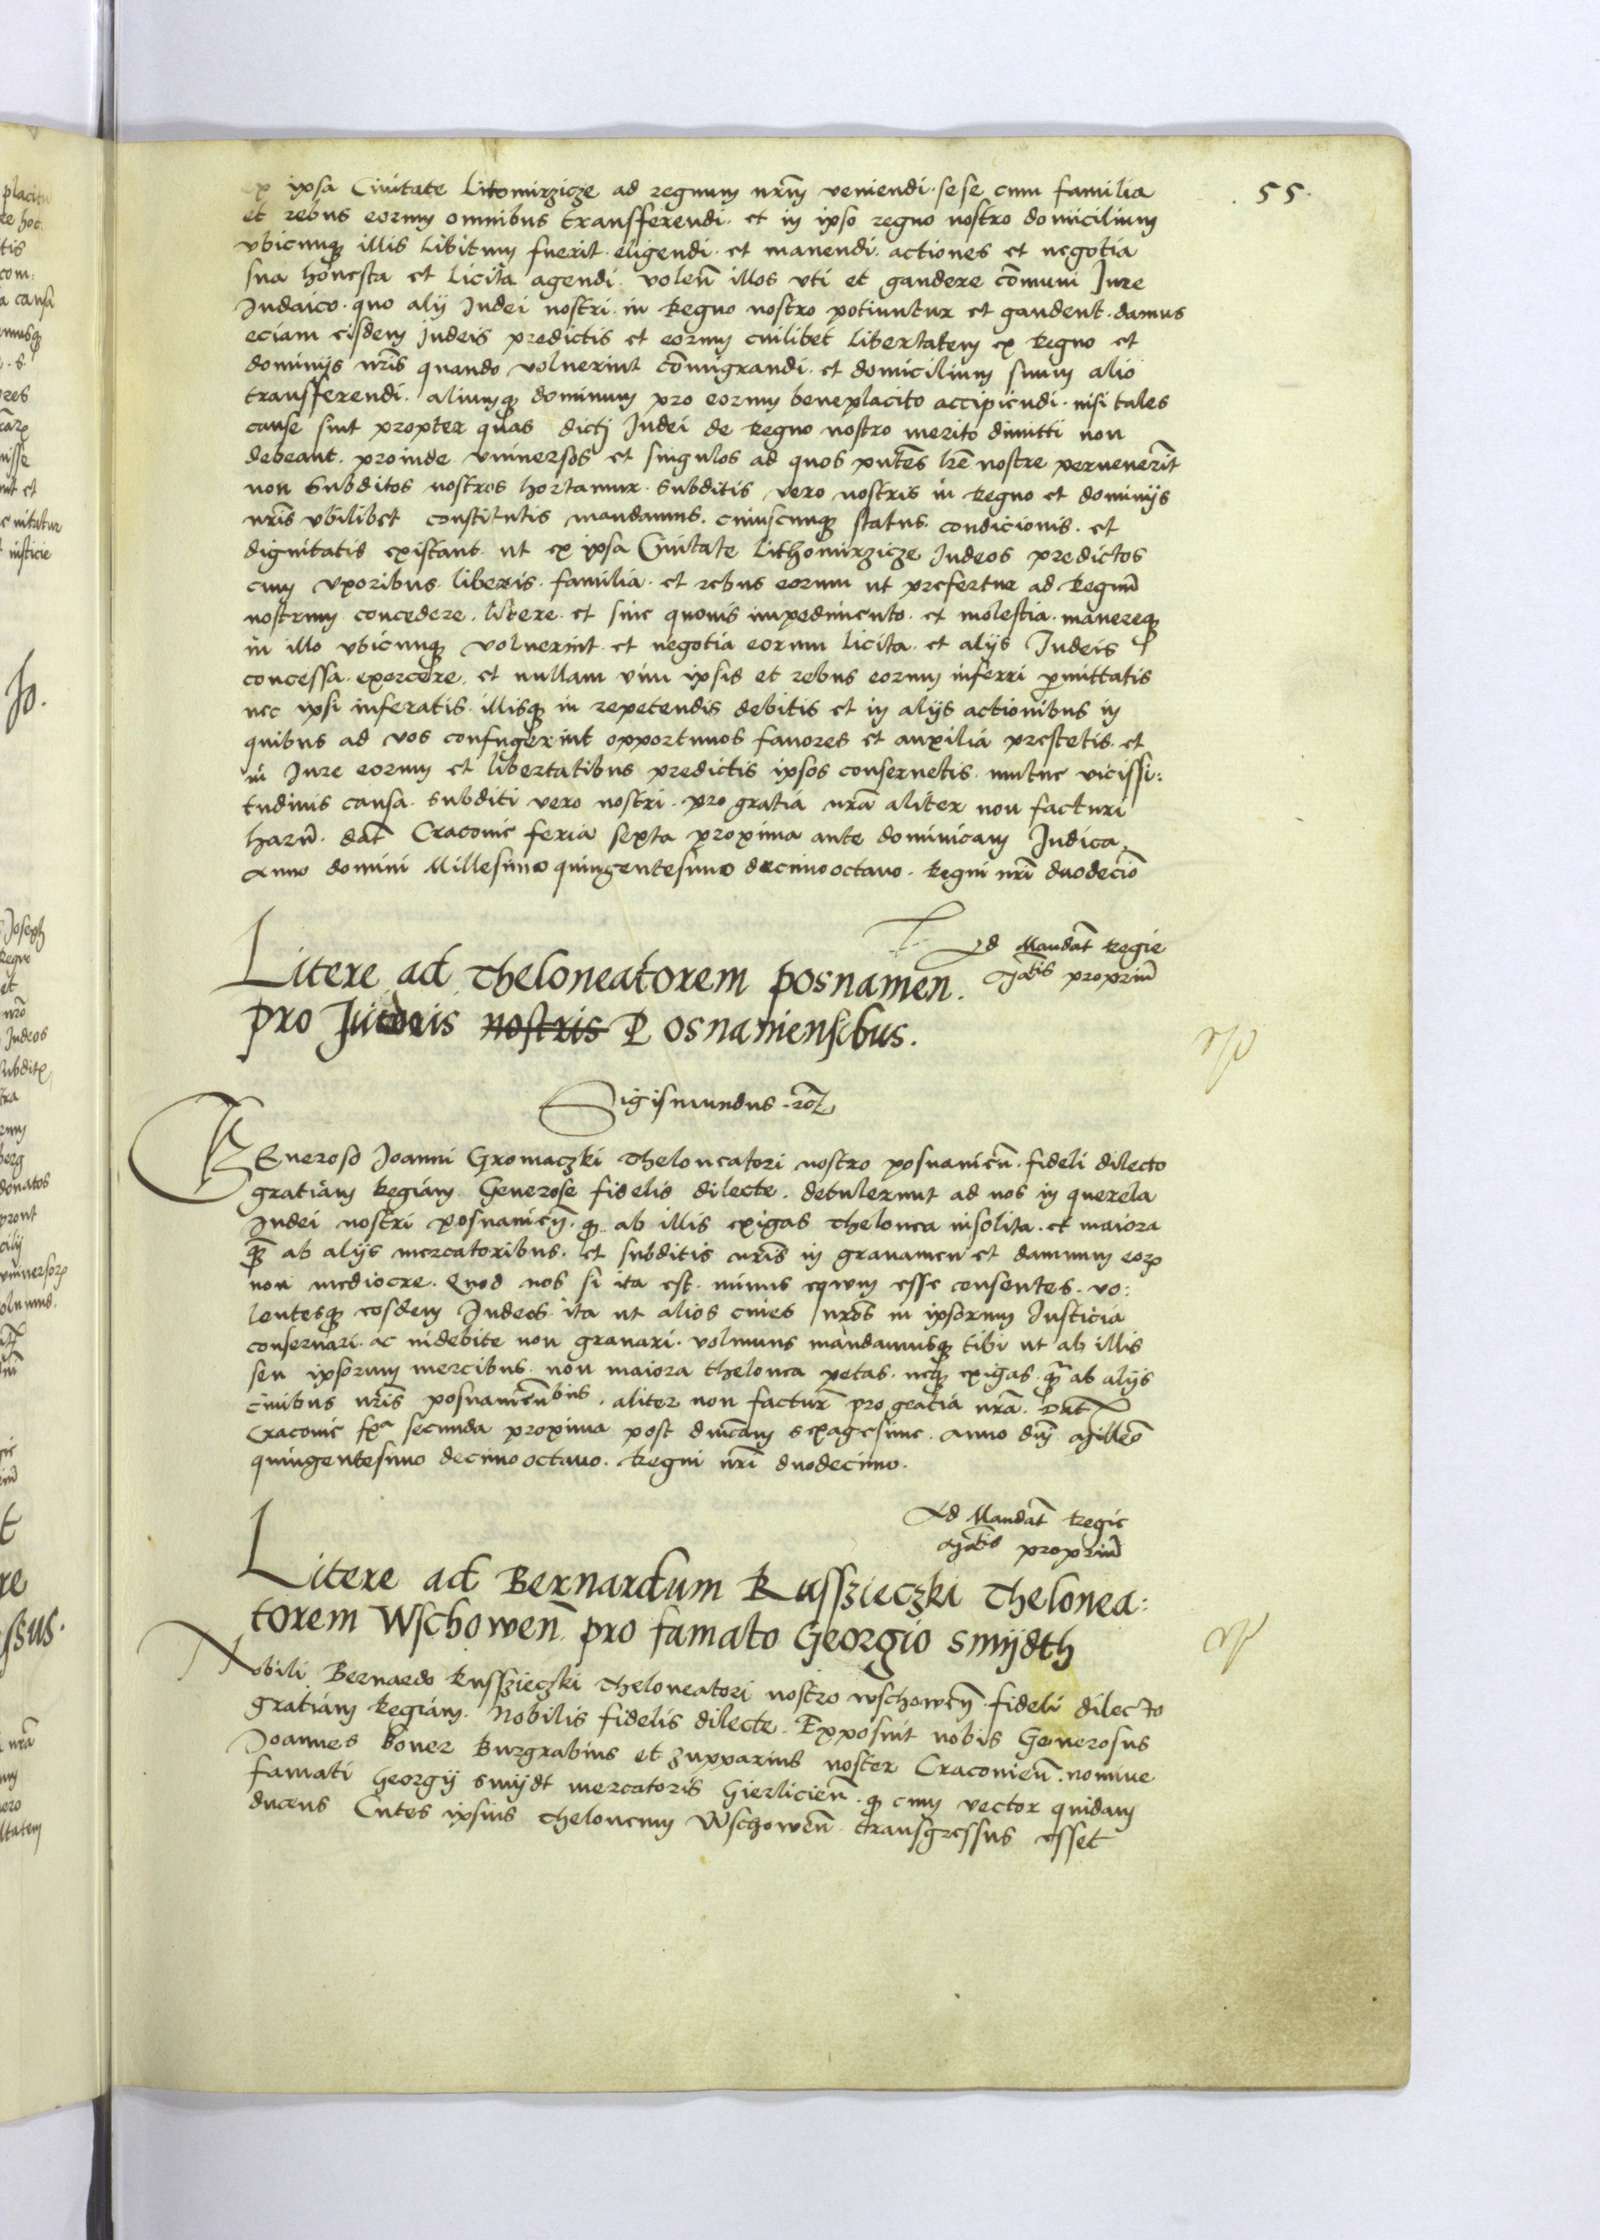 55.
ex ipsa Civitate Litomirzicze ad regnum nrm̄ veniendi. sese cum familia
et rebus eorum omnibus transfferendi. et in ipso regno nostro domicilium
vbicunqꝫ illis libitum fuerit eligendi. et manendi. actiones et negotia
sua honesta et licita agendi. volen̄ illos vti et gaudere cōmuni Jure
Judaico. quo alij Judei nostri in Regno nostro potiuntur et gaudent. damus
eciam eisdem judeis predictis et eorum cuilibet libertatem ex Regno et
dominijs nr̄is quando voluerint cōmigrandi. et domicilium suum alio
transfferendi. aliumqꝫ dominum pro eorum beneplacito accipiendi. nisi tales
cause sint propter quas dicti Judei de Regno nostro merito dimitti non
debeant. proinde vniuersos et singulos ad quos pn̄tes lr̄e nostre peruenerīt
non Subditos nostros hortamur. subditis vero nostris in Regno et dominijs
nr̄is vbilibet constitutis mandamus. cuiuscunqꝫ status. condicionis. et
dignitatis existant. ut ex ipsa Ciuitate Lithomirzicze Judeos predictos
cum vxoribus liberis. familia. et rebus eorum ut prefertur ad Regnū
nostrum concedere. libere. et sine quouis impedimento. et molestia. manereqꝫ
in illo vbicunqꝫ voluerint. et negotia eorum licita. et alijs Judeis
concessa. exercere. et nullam vim ipsis et rebus eorum inferri p̄mittatis
nec ipsi inferatis. illisqꝫ in repetendis debitis et in alijs actionibus in
quibus ad vos confugerint opportunos fauores et auxilia prestetis. et
in Jure eorum et libertatibus predictis ipsos conseruetis. mutue vicissi:
tudinis causa. subditi vero nostri. pro gratia nr̄a aliter non facturi
harū. dat̄ Cracouie feria sexta proxima ante dominicam Judica.
Anno domini Millesimo quingentesimo decimooctauo. Regni nr̄i duodecīo
Ad Mandat̄ Regie
Mat̄is propriū
Litere ad Theloneatorem posnanien.
pro Judeis nostris Posnaniensibus.
Sigismundus. rc̄.
Generoso Joanni Gromaczki Theloneatori nostro posnanien̄. fideli dilecto
gratiam Regiam. Generose fidelis dilecte. detulerunt ad nos in querela
Judei nostri posnanien̄. qꝫ ab illis exigas thelonea insolita. et maiora
qꝫ̄ ab alijs mercatoribus. et subditis nr̄is in grauamen et damnum eoꝝ
non mediocre. Quod nos si ita est. minus equum esse censentes. vo:
lentesqꝫ eosdem Judeos ita ut alios ciues nr̄os in ipsorum Justicia
conseruari. ac indebite non grauari. volumus mandamusqꝫ tibi ut ab illis
seu ipsorum mercibus. non maiora thelonea petas. neqꝫ exigas. qꝫ̄ ab alijs
ciuibus nr̄is posnanien̄bus. aliter non factur̄ pro gratia nr̄a. Dat̄
Cracouie fꝛ̄a secunda proxima post dn̄icam sexagesime. Anno dn̄j Millēo
quingentesimo decimooctauo. Regni nr̄i duodecimo.
Ad Mandat̄ Regie
Mat̄is propriū
Litere ad Bernardum Russzieczki Thelonea:
torem Wschowen̄ pro famato Georgio Smijdth
Nobili Bernardo Russzieczki Theloneatori nostro wschowen̄. fideli dilecto
gratiam Regiam. Nobilis fidelis dilecte. Exposuit nobis Generosus
Joannes Boner Burgrabius et zupparius noster Cracouien̄. nomine
famati Georgij Smijdt mercatoris Gierlicien̄. qꝫ cum vector quidam
ducens Cutes ipsius theloneum Wschowen̄ transgressus esset